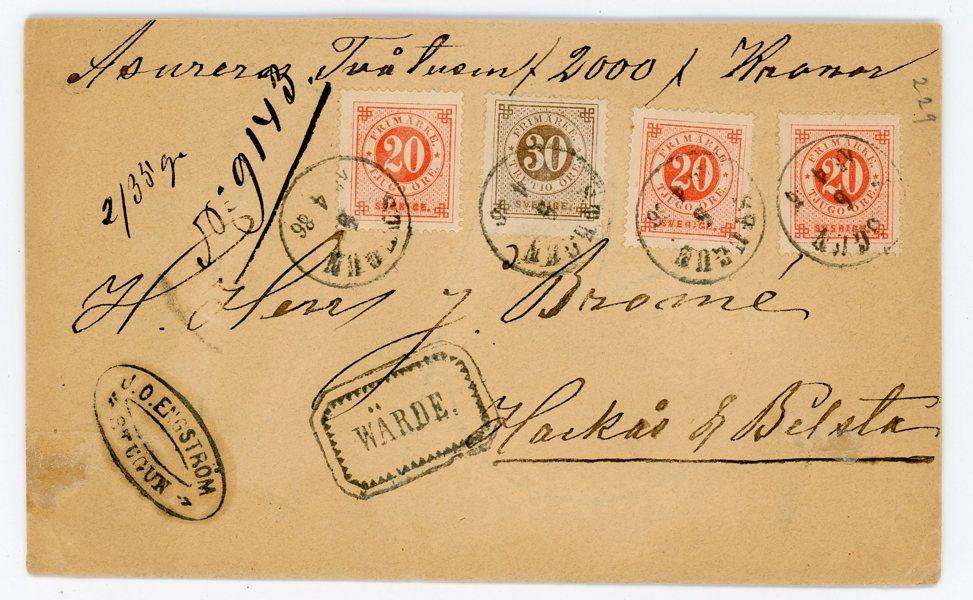 Assureras Tvåtusen / 2000 / Kronor
229
2/35 gr
No 9143
FRIMÄRKE.
20
TJUGO ÖRE.
SVERIGE.
FRIMÄRKE.
30
TRETTIO ÖRE
SVERIGE.
FRIMÄRKE.
20
TJUGO ÖRE.
SVERIGE.
FRIMÄRKE.
20
TJUGO ÖRE.
SVERIGE.
STUGUN
4
86
H. Herr J. Bromé
WÄRDE.
Hackås & Bilsta
J. O. ENGSTRÖM
"STUGUN"